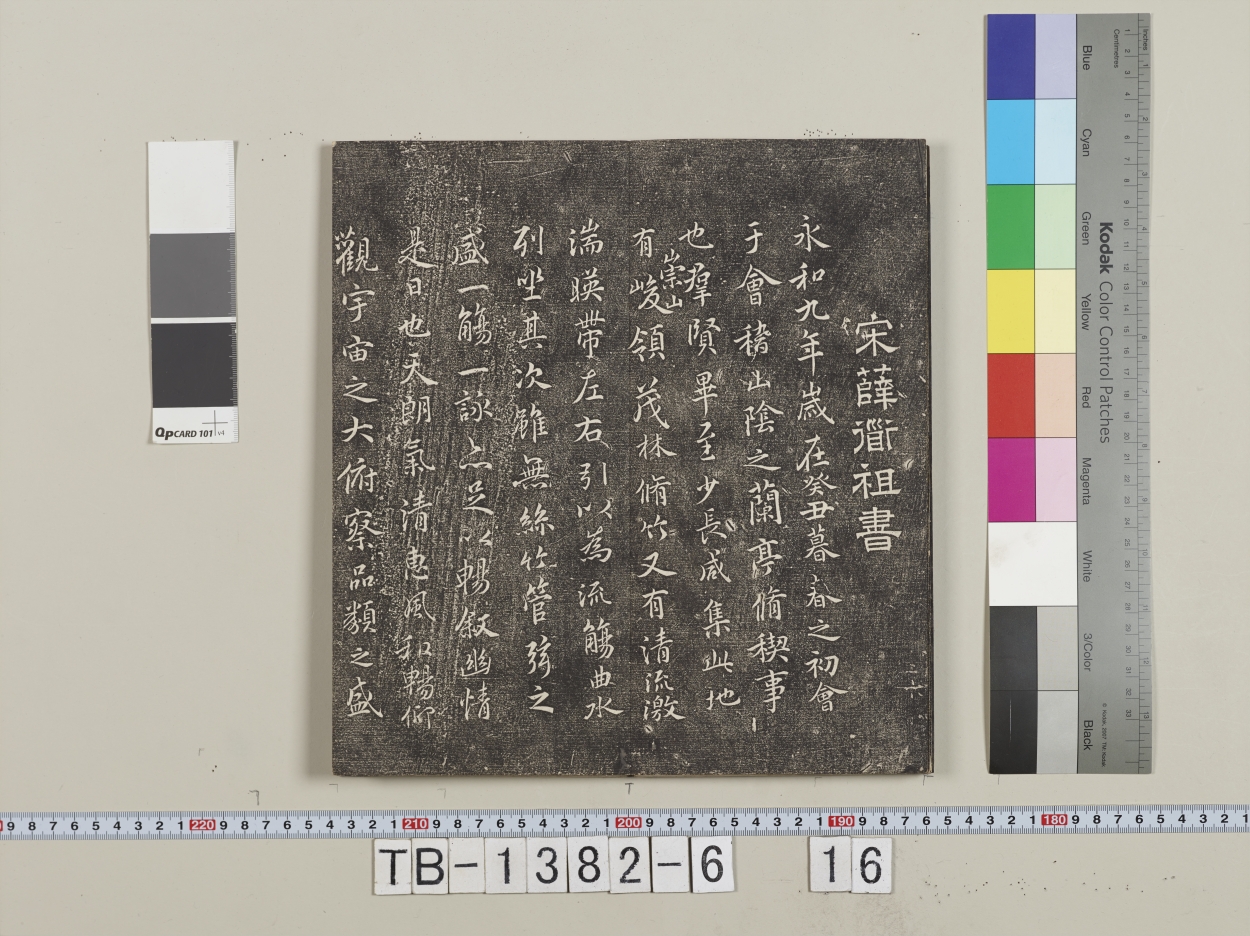 宋薛衜祖書
永和九年歲在癸丑暮春之初會
于會稽山陰之蘭亭脩稧事
也羣賢畢至少長咸集此地
有崇山峻領茂林脩竹又有清流激
湍暎帶左右引以為流觴曲水
列坐其次雖無絲竹管弦之
盛一觴一詠亦足以暢叙幽情
是日也天朗氣清惠風和暢仰
觀宇宙之大俯察品類之盛
QPCARD 101 v4
Kodak Color Control Patches
Blue
Cyan
Green
Yellow
Red
Magenta
White
3/Color
Black
Inches
Centimetres
© Kodak, 2007 TM: Kodak
1 2 3 4 5 6 7 8 9 10 11 12 13 14 15 16 17 18 19 20 21 22 23 24 25 26 27 28 29 30 31 32 33
9 8 7 6 5 4 3 2 1 220 9 8 7 6 5 4 3 2 1 210 9 8 7 6 5 4 3 2 1 200 9 8 7 6 5 4 3 2 1 190 9 8 7 6 5 4 3 2 1 180 9 8 7 6 5 4 3 2 1
TB-1382-6 16